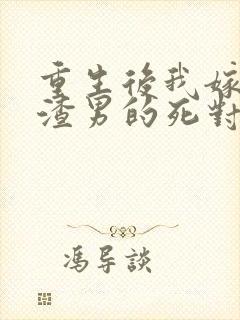 重生後我嫁
渣男的死對
馮導談